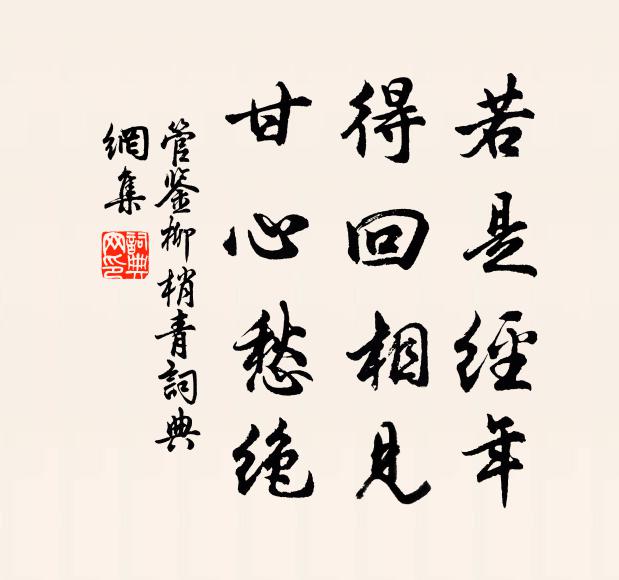 若是經年
得回相見
甘心愁絶
管鉴柳梢青詞典
網集
詞典
网印